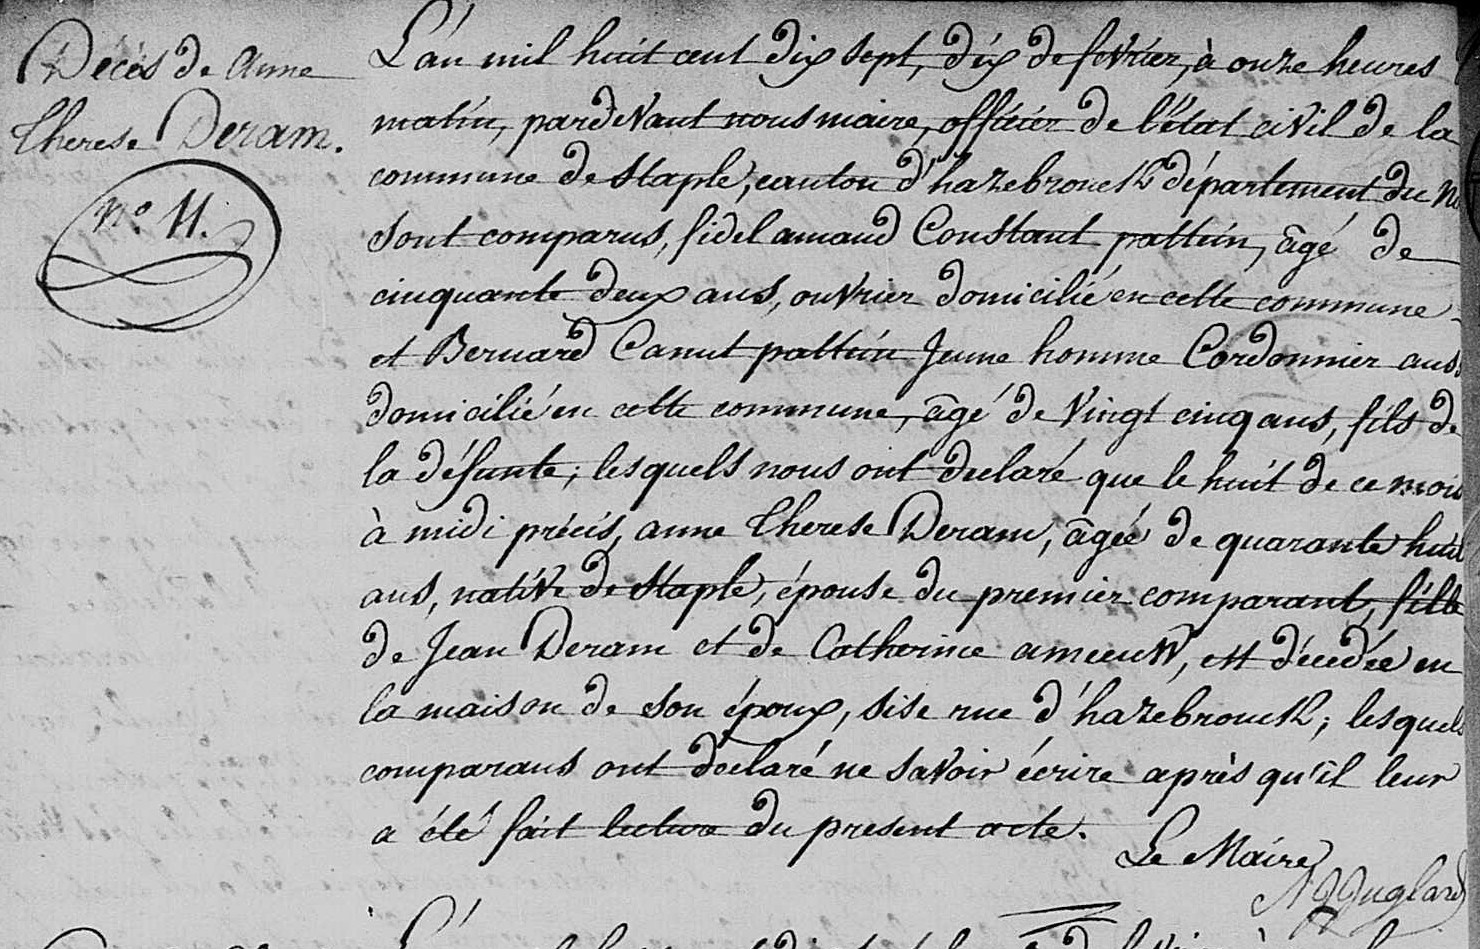 Décés de anne
therese Deram.
n.° 11.
L'an mil huit cent dix sept, dix de fevrier, à onze heures
matin, pardevant nous maire, officier de l'état civil de la
commune de Staple, canton d'hazebrouck département du No
sont comparus, fidel amand Constant pattin, âgé de
cinquante deux ans, ouvrier domicilié en cette commune
et Bernard Canut pattin Jeune homme Cordonnier auss
domicilié en cette commune, âgé de vingt cinq ans, fils de
la défunte; lesquels nous ont declaré que le huit de ce mois
à midi précis, anne therese Deram, âgée de quarante huit
ans, native de Staple, épouse du premier comparant, fille
de Jean Deram et de Catherine ameeuw, est décedée en
la maison de son époux, sise rue d'hazebrouck; lesquels
comparans ont declaré ne savoir écrire après qu'il leur
a été fait lecture du present acte.
Le Maire
Juglard